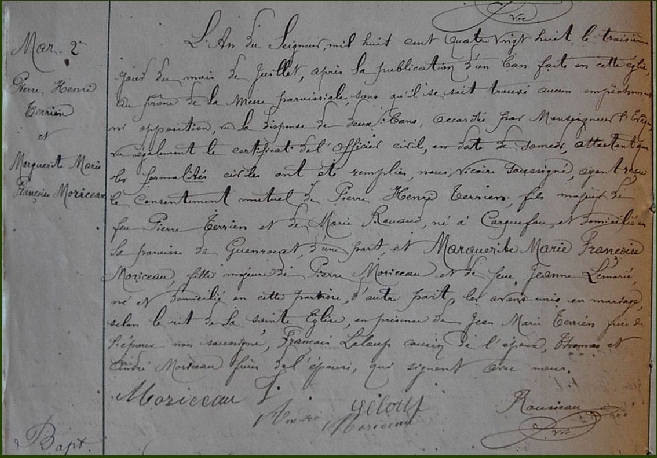 Vic
Mar. 2
Pierre, Henri
Terrien
et
Marguerite Marie
Françoise Moriceau
L'An du Seigneur, mil huit cent quatre vingt huit le troisième
jour du mois de Juillet, après la publication d'un ban faite en cette église,
au prône de la Messe paroissiale, sans qu'il se soit trouvé aucun empêchement
ni opposition, vu la dispense de deux bans, accordée par Monseigneur
vu également le certificat de l'officier civil, en date de samedi, attestant que
les formalités civiles ont été remplies, nous, Vicaire soussigné, ayant reçu
le consentement mutuel de Pierre Henri Terrien, fils majeur de
feu Pierre Terrien et de Marie Rouaud, né à Carquefou, et domicilié en
la paroisse de Guenrouet, d'une part, et Marguerite Marie Françoise
Moriceau, fille majeure de Pierre Moriceau et de feue Jeanne Lemarié
née et domiciliée en cette paroisse, d'autre part, les avons unis en mariage,
selon le rit de la sainte Eglise, en présence de Jean Marie Terrien frère de
l'époux non soussigné, François Leloup cousin de l'époux, Thomas et
André Moriceau frères de l'épouse, qui signent avec nous.
Moriceau T.
André Leloup
Moriceau
Vic
Bapt.